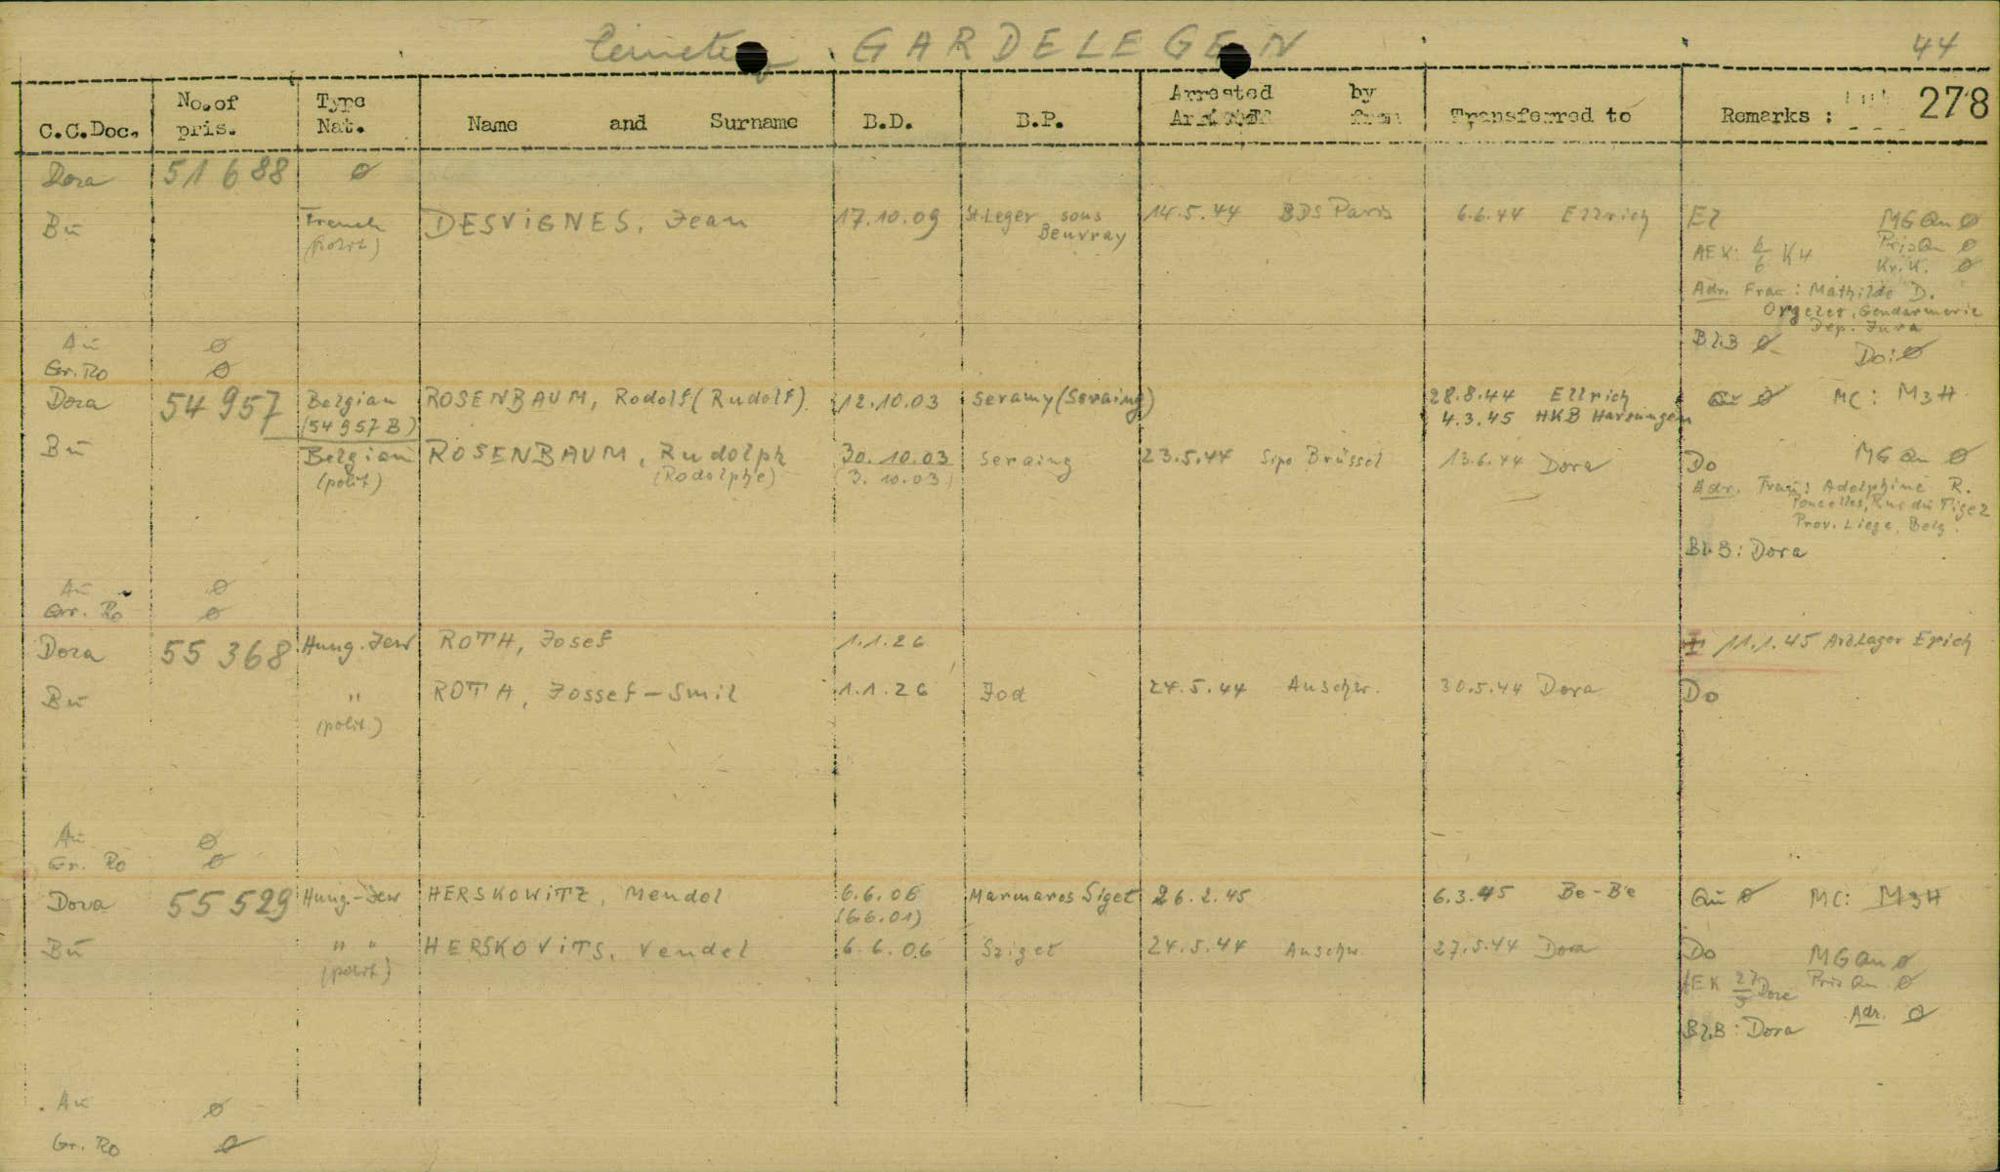 Cemetery GARDELEGEN 44
C.C.Doc. No. of pris. Type Nat. Name and Surname B.D. B.P. Arrested by Arrived from Transferred to Remarks : 278
Dora 51 688 ø
Bu French (polit) DESVIGNES, Jean 17.10.09 St. Leger sous Beuvray 14.5.44 BDS Paris 6.6.44 Ellrich El MG Qu ø
AEK: 6/6 K4 Pris Qu ø
Kr.K. ø
Adr. Frau: Mathilde D.
Orgelet, Gendarmerie
Dep. Jura
Bl.B ø Do: ø
Au ø
Gr. Ro ø
Dora 54 957 Belgian (54957 B) ROSENBAUM, Rodolf (Rudolf) 12.10.03 Seramy (Seraing) 28.8.44 Ellrich Qu ø MC: M3H
4.3.45 HKB Harzungen
Bu Belgian (polit) ROSENBAUM, Rudolph (Rodolphe) 30.10.03 (3.10.03) Seraing 23.5.44 Sipo Brüssel 13.6.44 Dora Do MG Qu ø
Adr. Frau: Adolphine R.
Rue du
Prov. Liege, Belg.
Bl.B: Dora
Au ø
Gr. Ro ø
Dora 55 368 Hung. Jew ROTH, Josef 1.1.26 11.1.45 Arb.Lager Erich
Bu " (polit) ROTH, Jossef-Smil 1.1.26 Jod 24.5.44 Auschw. 30.5.44 Dora Do
Au ø
Gr. Ro ø
Dora 55 529 Hung-Jew HERSKOWITZ, Mendel 6.6.06 (6.6.01) Marmaros Siget 26.2.45 6.3.45 Be-Be Qu ø MC: M3H
Bu " " (polit) HERSKOVITS, Vendel 6.6.06 Sziget 24.5.44 Auschw. 27.5.44 Dora Do MG Qu ø
AEK 27/5 Dora Pris Qu ø
Adr. ø
Bl.B: Dora
Au ø
Gr. Ro ø